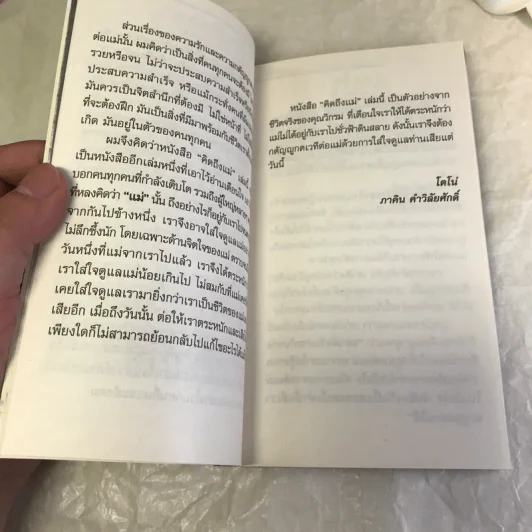 ส่วนเรื่องของความรักและความกตัญญู
ต่อแม่นั้น ผมคิดว่าเป็นสิ่งที่คนทุกคนจะต้องมี
รวยหรือจน ไม่ว่าจะประสบความสำเร็จหรือไม่
ประสบความสำเร็จ หรือแม้กระทั่งคนที่
มันควรเป็นจิตสำนึกที่ต้องมี ไม่ใช่หน้าที่
ที่จะต้องฝึก มันเป็นสิ่งที่มีมาพร้อมกับชีวิตเรา
เกิด มันอยู่ในตัวของคนทุกคน
ผมจึงคิดว่าหนังสือ "คิดถึงแม่"
เป็นหนังสืออีกเล่มหนึ่งที่เอาไว้อ่านเตือน
บอกคนทุกคนที่กำลังเติบโต รวมถึงผู้ใหญ่
ที่หลงคิดว่า "แม่" นั้น ถึงอย่างไรก็อยู่กับเรา
จากกันไปข้างหนึ่ง เราจึงอาจใส่ใจดูแลแม่
ไม่ลึกซึ้งนัก โดยเฉพาะด้านจิตใจของแม่
วันหนึ่งที่แม่จากเราไปแล้ว เราจึงได้ตระหนัก
เราใส่ใจดูแลแม่น้อยเกินไป ไม่สมกับที่แม่
เคยใส่ใจดูแลเรามายิ่งกว่าเราเป็นชีวิตของแม่
เสียอีก เมื่อถึงวันนั้น ต่อให้เราตระหนักและ
เพียงใดก็ไม่สามารถย้อนกลับไปแก้ไขอะไรได้
หนังสือ "คิดถึงแม่" เล่มนี้ เป็นตัวอย่างจาก
ชีวิตจริงของคุณวิกรม ที่เตือนใจเราให้ได้ตระหนักว่า
แม่ไม่ได้อยู่กับเราไปชั่วฟ้าดินสลาย ดังนั้นเราจึงต้อง
กตัญญูกตเวทีต่อแม่ด้วยการใส่ใจดูแลท่านเสียแต่
วันนี้
โตโน่
ภาคิน คำวิลัยศักดิ์